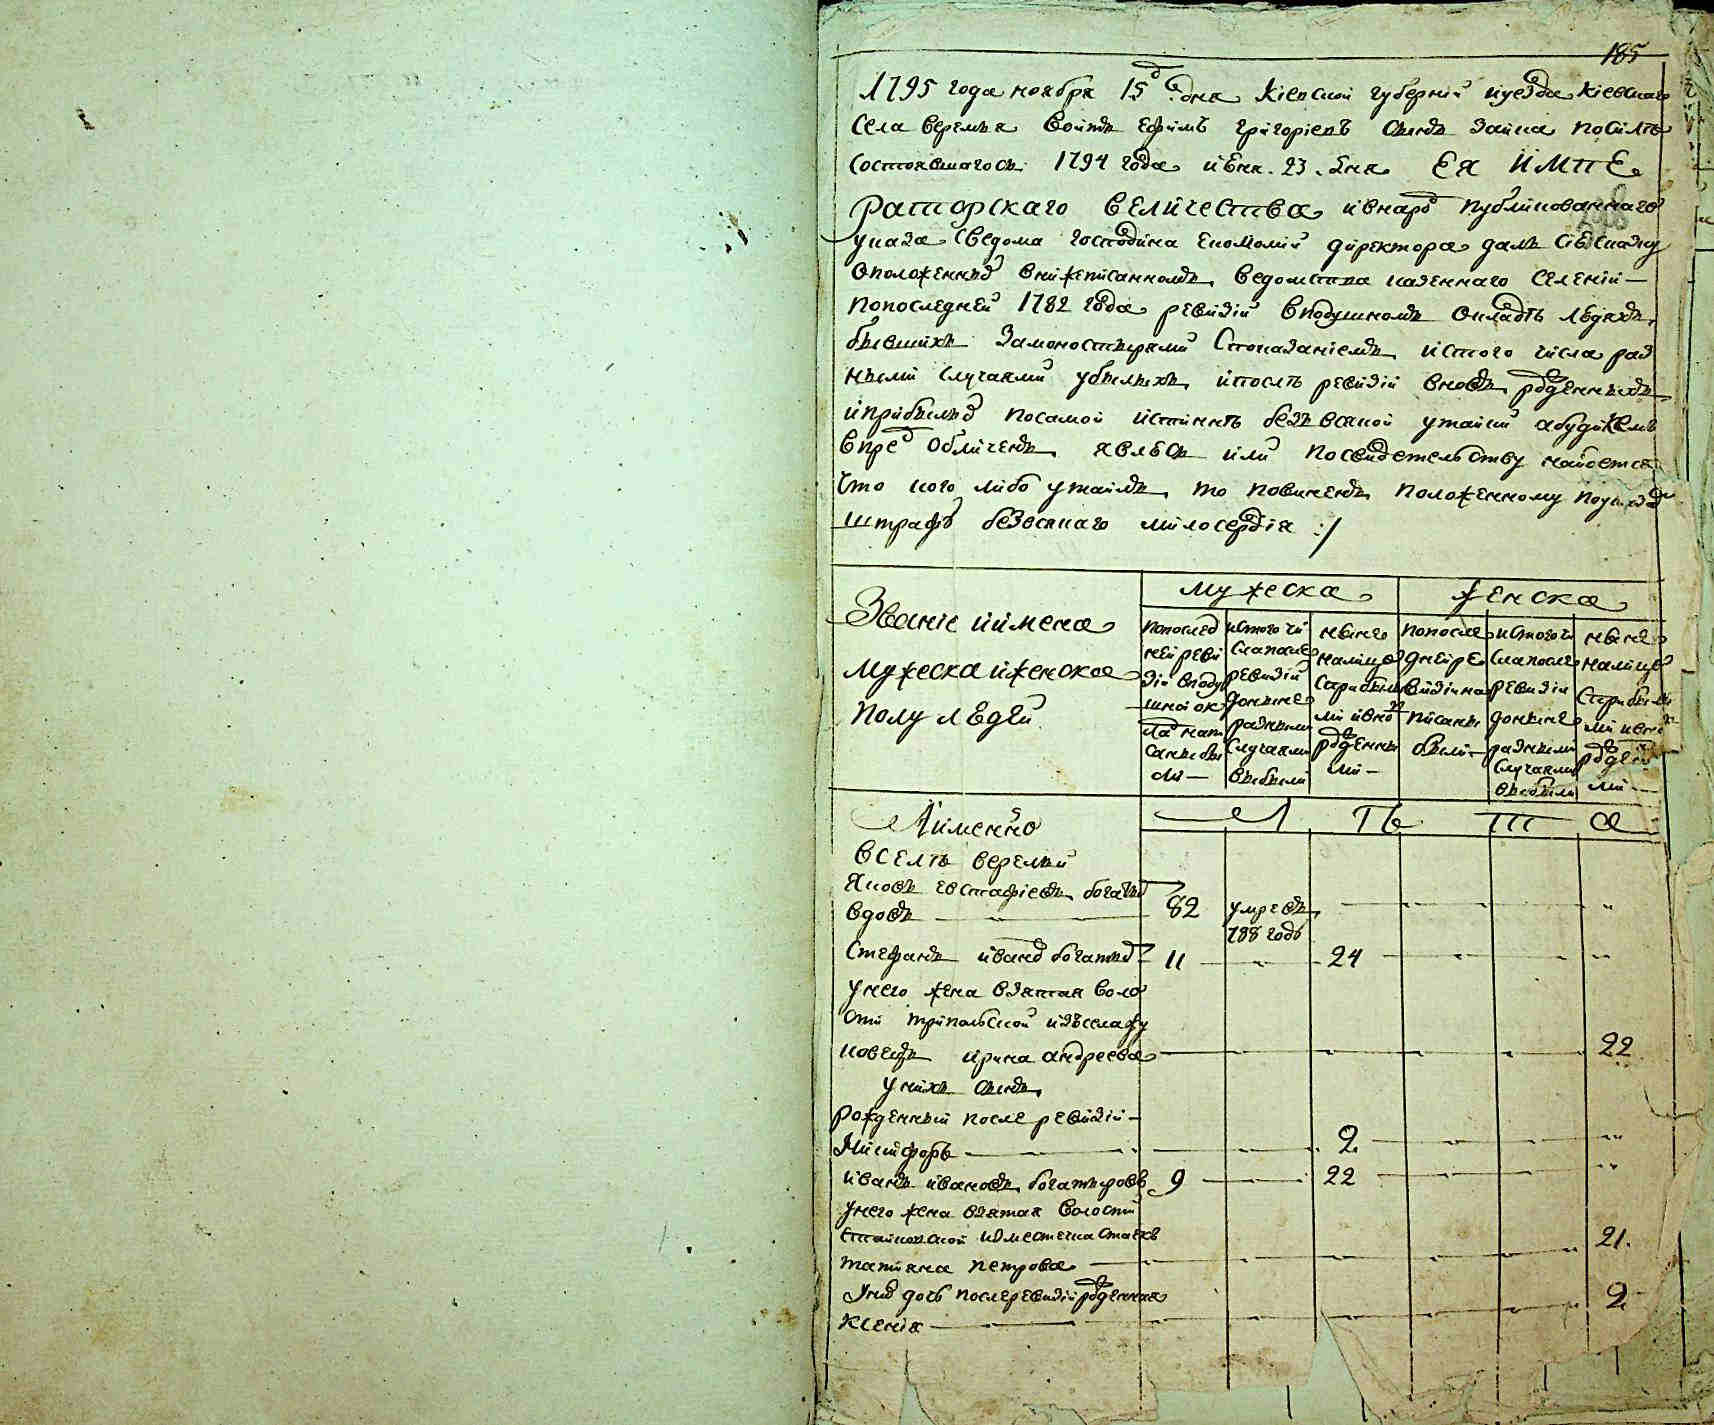 185
1795 года ноября 15 д. дня Кiевской губернiи и уезда Кiевскаго
села Веремья войтъ Ефимъ Григорiевъ сынъ Заика по силѣ
состоявшагося 1794 года iюня 23 дня ЕЯ ИМПЕ
РАТОРСКАГО ВЕЛИЧЕСТВА и в нард публикованнаго
указа сведома господина економiи директора далъ сiю скаску
о положенных в нижеписанномъ ведомства казеннаго селенiи —
по последней 1782 года ревизiи в подушномъ окладѣ людяхъ
бывшихъ за моностырями с показанiемъ ис того числа раз
ными случаями убылыхъ и после ревизiи вновь рожденныхъ
и прибылых по самой истиннѣ безъ всякой утайки а буде кемъ
впред обличенъ явлюсь или по свидетельству найдется
что кого либо утаилъ то повиненъ положенному по указу
штрафу без всякаго милосердiя :/
Званiе и имена
мужеска и женска
полу людей
мужеска
женска
по послед
ней реви
зiи в поду
шной ок
лад напи
саны бы
ли —
ис того чи
сла после
ревизiи
до ныне
разными
случаями
выбыли
ныне
на лицо
с прибылы
ми и вно
рожденны
ми —
по после
дней ре
визiи на
писаны
были —
ис того чи
сла после
ревизiи
до ныне
разными
случаями
выбыли
ныне
на лицо
с прибылы
ми и вно
рожден
ми —
А именно
Л ѣ т а
в селѣ Веремьи
Яковъ Евстафiевъ Богаты
вдовъ — 82 умревъ — — — „
788 годѣ
Стефанъ Иванов Богатыр 11 — „ — 24 — „ — „ — „
у него жена взятая воло
сти Трипольской изъ села Жу
ковецъ Ирина Андреева — „ — „ — „ — „ — 22
у нихъ сынъ
рожденный после ревизiи —
Никифоръ — „ — „ — 2 — „ — „ — „
Иванъ Ивановъ Богатыровъ 9 — „ — 22 — „ — „ — „
у него жена взятая волости
Стайковской из местечка Стаекъ 21.
Татiяна Петрова — „ — „ — „ — „
у них дочь после ревизiи рожденная 2
Ксенiя — „ — „ — „ — „